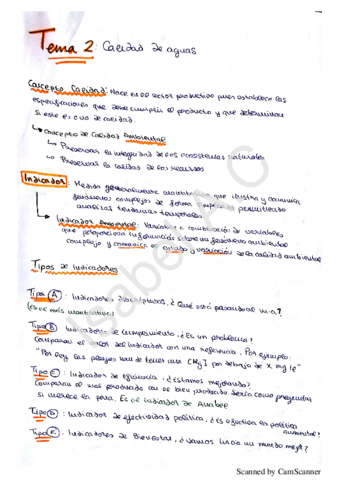 Tema 2: Calidad de aguas
Concepto Calidad: Nace en el sector productivo pues establece las
especificaciones que debe cumplir el producto y que determinan
si este es o no de calidad.
Concepto de calidad Ambiental
Preservar la integridad de los ecosistemas naturales
Preservar la calidad de los recursos
Indicador: Medida generalmente cuantitativa que ilustra y comunica
fenómenos complejos de forma simple permitiendo
analizar tendencias temporales
Indicador Ambiental: Variable o combinación de variables
que proporciona información sobre un fenómeno ambiental
complejo y comunica el estado y variación de la calidad ambiental
Tipos de Indicadores
Tipo A: Indicadores descriptivos, ¿Qué está pasando al m.a?
(Es el más cuantitativo)
Tipo B: Indicadores de cumplimiento, ¿Es un problema?
Comparan el valor del indicador con una referencia. Por ejemplo:
"Por ley los peces han de tener una [Hg] por debajo de x mg/l"
Tipo C: Indicador de eficiencia, ¿Estamos mejorando?
Comparan el mal producido con el bien producido
si merece la pena. Es el indicador de
Tipo D: Indicador de efectividad política, ¿Es efectiva la política
ambiental?
Tipo E: Indicadores de Bienestar, ¿Vamos hacia un mundo mejor?
Isabel A C
Scanned by CamScanner